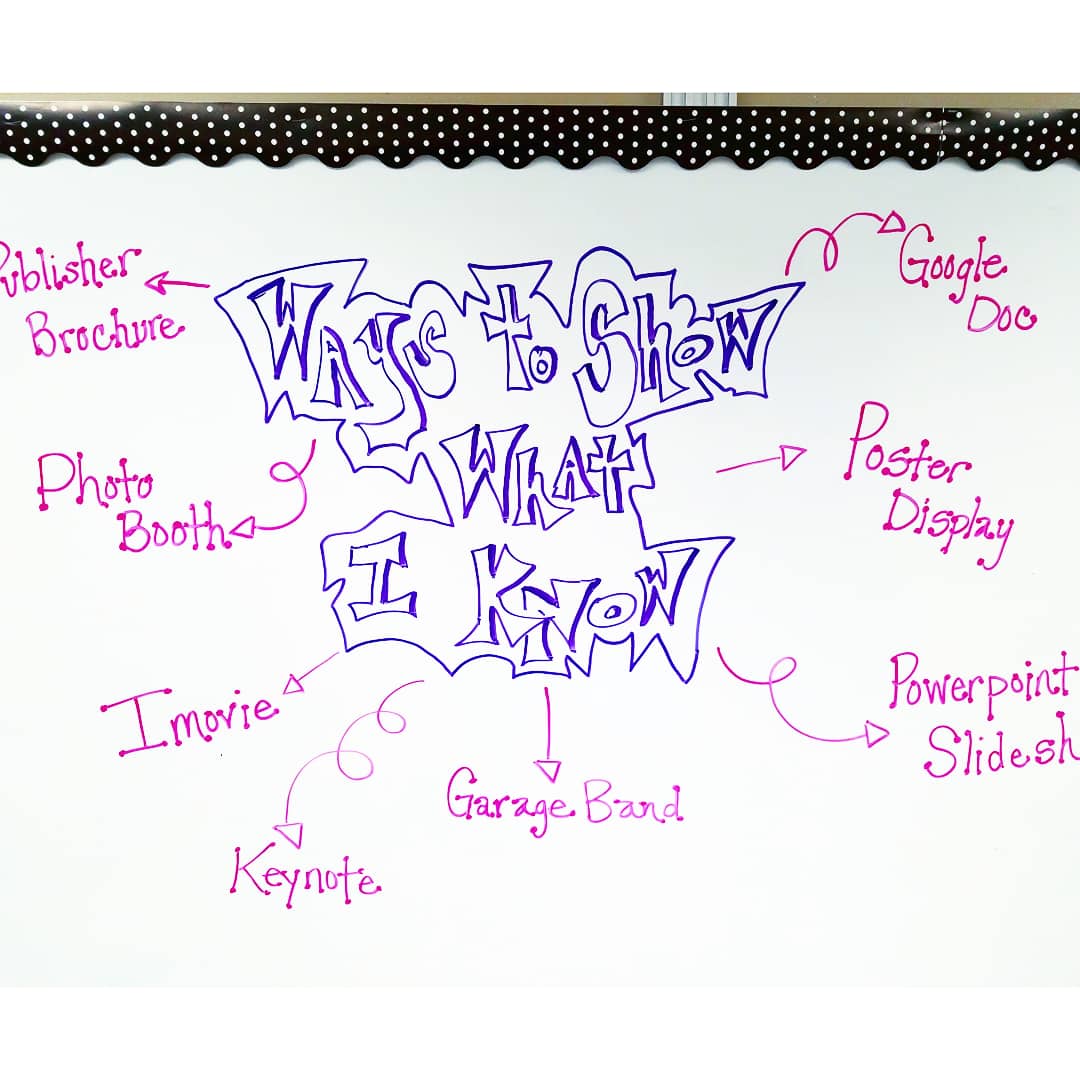 Ways to Show
What
I Know
Publisher
Brochure
Photo
Booth
Imovie
Keynote
Garage Band
Powerpoint
Slidesh
Poster
Display
Google
Doc